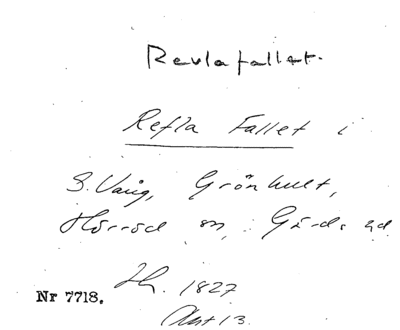 Revlafallet.
Refla Fallet i
S. Vång, Grönhult,
Hörröd sn, Gärds hd
Nr 7718.
1827
Akt 13.